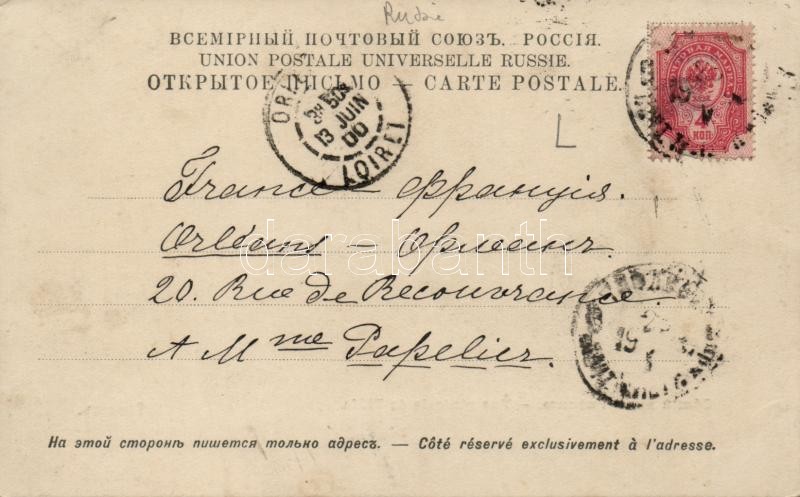 Russie
ВСЕМІРНЫЙ ПОЧТОВЫЙ СОЮЗЪ. РОССІЯ.
UNION POSTALE UNIVERSELLE RUSSIE.
ОТКРЫТОЕ ПИСЬМО — CARTE POSTALE.
13 JUIN
00
LOIRET
4
КОП.
L
France — Франція.
Orléans — Орлеанъ.
20. Rue de Recouvrance
A Mme Papelier.
darabanth
На этой сторонѣ пишется только адресъ. — Côté réservé exclusivement à l'adresse.